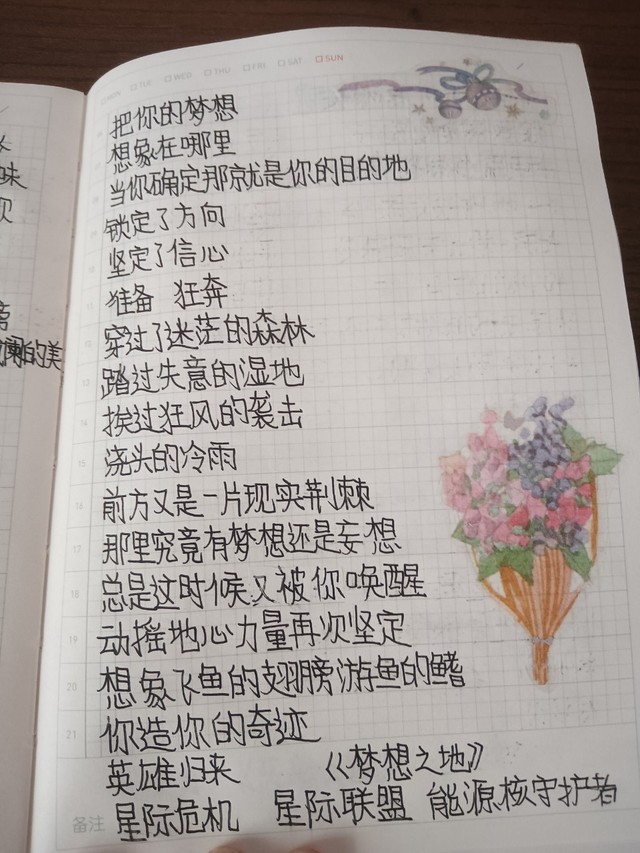 MON TUE WED THU FRI SAT SUN
把你的梦想
想象在哪里
当你确定那就是你的目的地
锁定了方向
坚定了信心
准备 狂奔
穿过了迷茫的森林
踏过失意的湿地
挨过狂风的袭击
浇头的冷雨
前方又是一片现实荆棘
那里究竟有梦想还是妄想
总是这时候又被你唤醒
动摇地心力量再次坚定
想象飞鱼的翅膀游鱼的鳍
你造你的奇迹
英雄归来 《梦想之地》
备注 星际危机 星际联盟 能源核守护者
味
的美